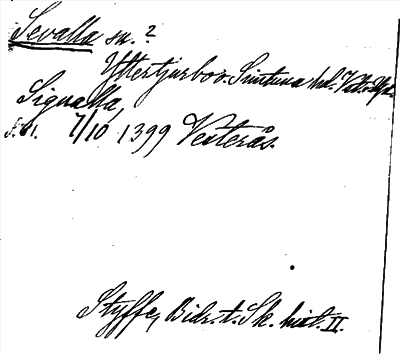 Sevalla sn. ?
Yttertjurbo o. Simtuna hd. Vstm.
Signalla,
s. 41. 7/10 1399 Vesterås.
Styffe, Bidr. t. Sk. hist. II.